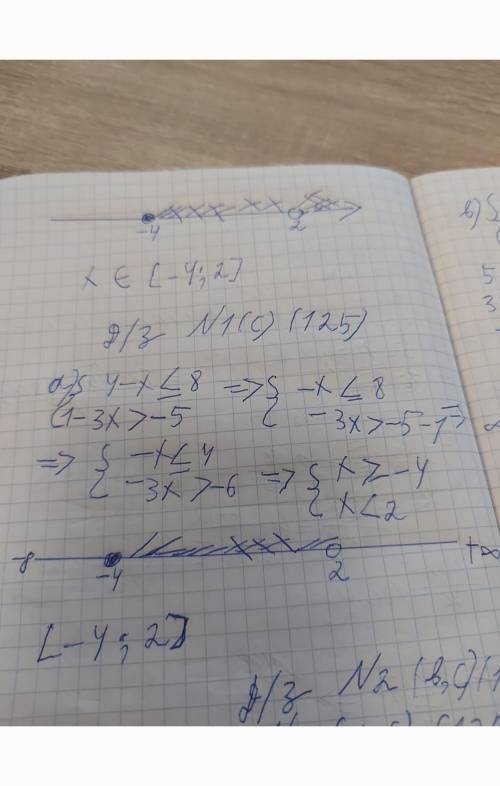 -4 2
x ∈ [-4; 2]
Д/з N1(c) (125)
{ 4-x ≤ 8 => { -x ≤ 8
{ 1-3x > -5 { -3x > -5-1
=> { -x ≤ 4 => { x ≥ -4
{ -3x > -6 { x < 2
-4 2 +∞
[-4; 2]
Д/з N2 (b,c) (1
b) {
5
3